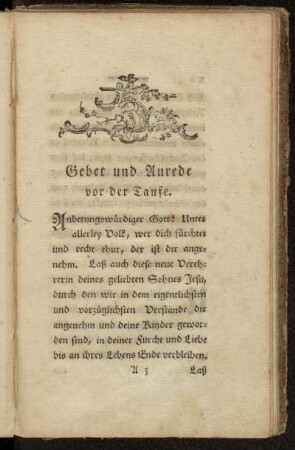 Gebet und Anrede
vor der Taufe.
Anbetungswürdiger Gott! Unter
allerley Volk, wer dich fürchtet
und recht thut, der ist dir ange-
nehm. Laß auch diese neue Vereh-
rerin deines geliebten Sohnes Jesu,
durch den wir in dem eigentlichsten
und vorzüglichsten Verstande dir
angenehm und deine Kinder gewor-
den sind, in deiner Furcht und Liebe
bis an ihres Lebens Ende verbleiben.
A 5 Laß